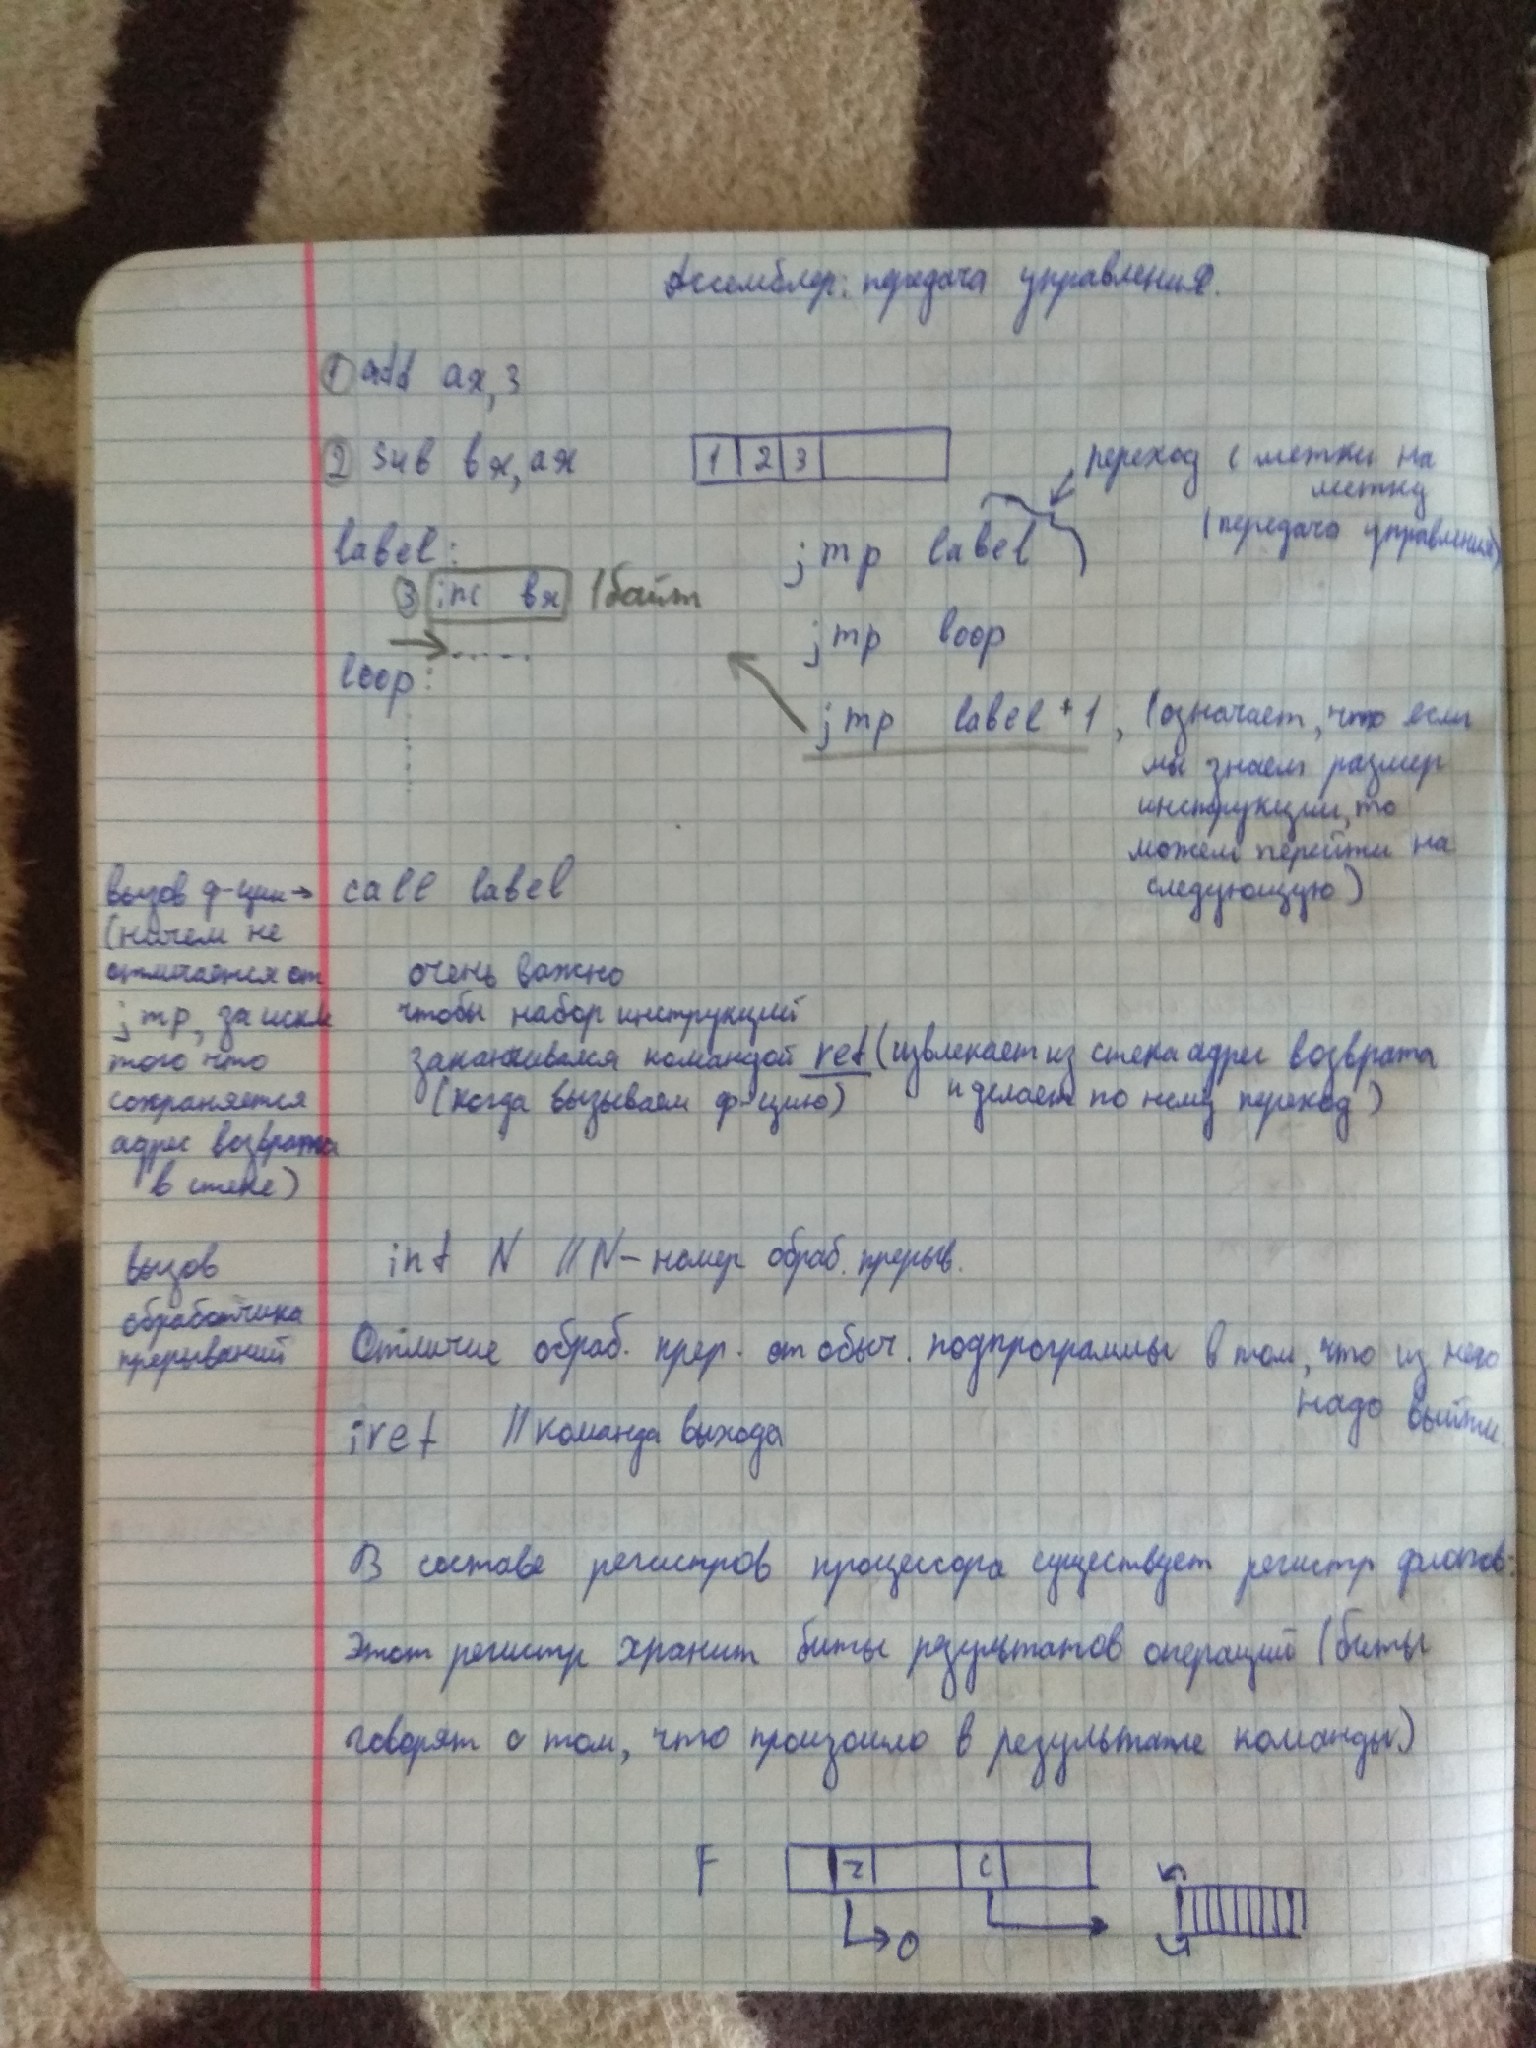 Ассемблер: передача управления.
① add ax, 3
② sub bx, ax
1 2 3
переход с метки на
метку
(передача управления)
label:
jmp label
③ inc bx 1 байт
jmp loop
.....
loop:
jmp label + 1, (означает, что если
мы знаем размер
инструкции, то
можем перейти на
следующую)
вызов ф-ции → call label
(ничем не
отличается от
jmp, за искл
того что
сохраняется
адрес возврата
в стеке)
очень важно
чтобы набор инструкций
заканчивался командой ret (извлекает из стека адрес возврата
(когда вызываем ф-цию) и делает по нему переход)
вызов
обработчика
прерываний
int N // N – номер обраб. прерыв.
Отличие обраб. прер. от обыч. подпрограммы в том, что из него
надо выйти.
iret // команда выхода
В составе регистров процессора существует регистр флагов:
Этот регистр хранит биты результатов операций (биты
говорят о том, что произошло в результате команды)
F Z C
0